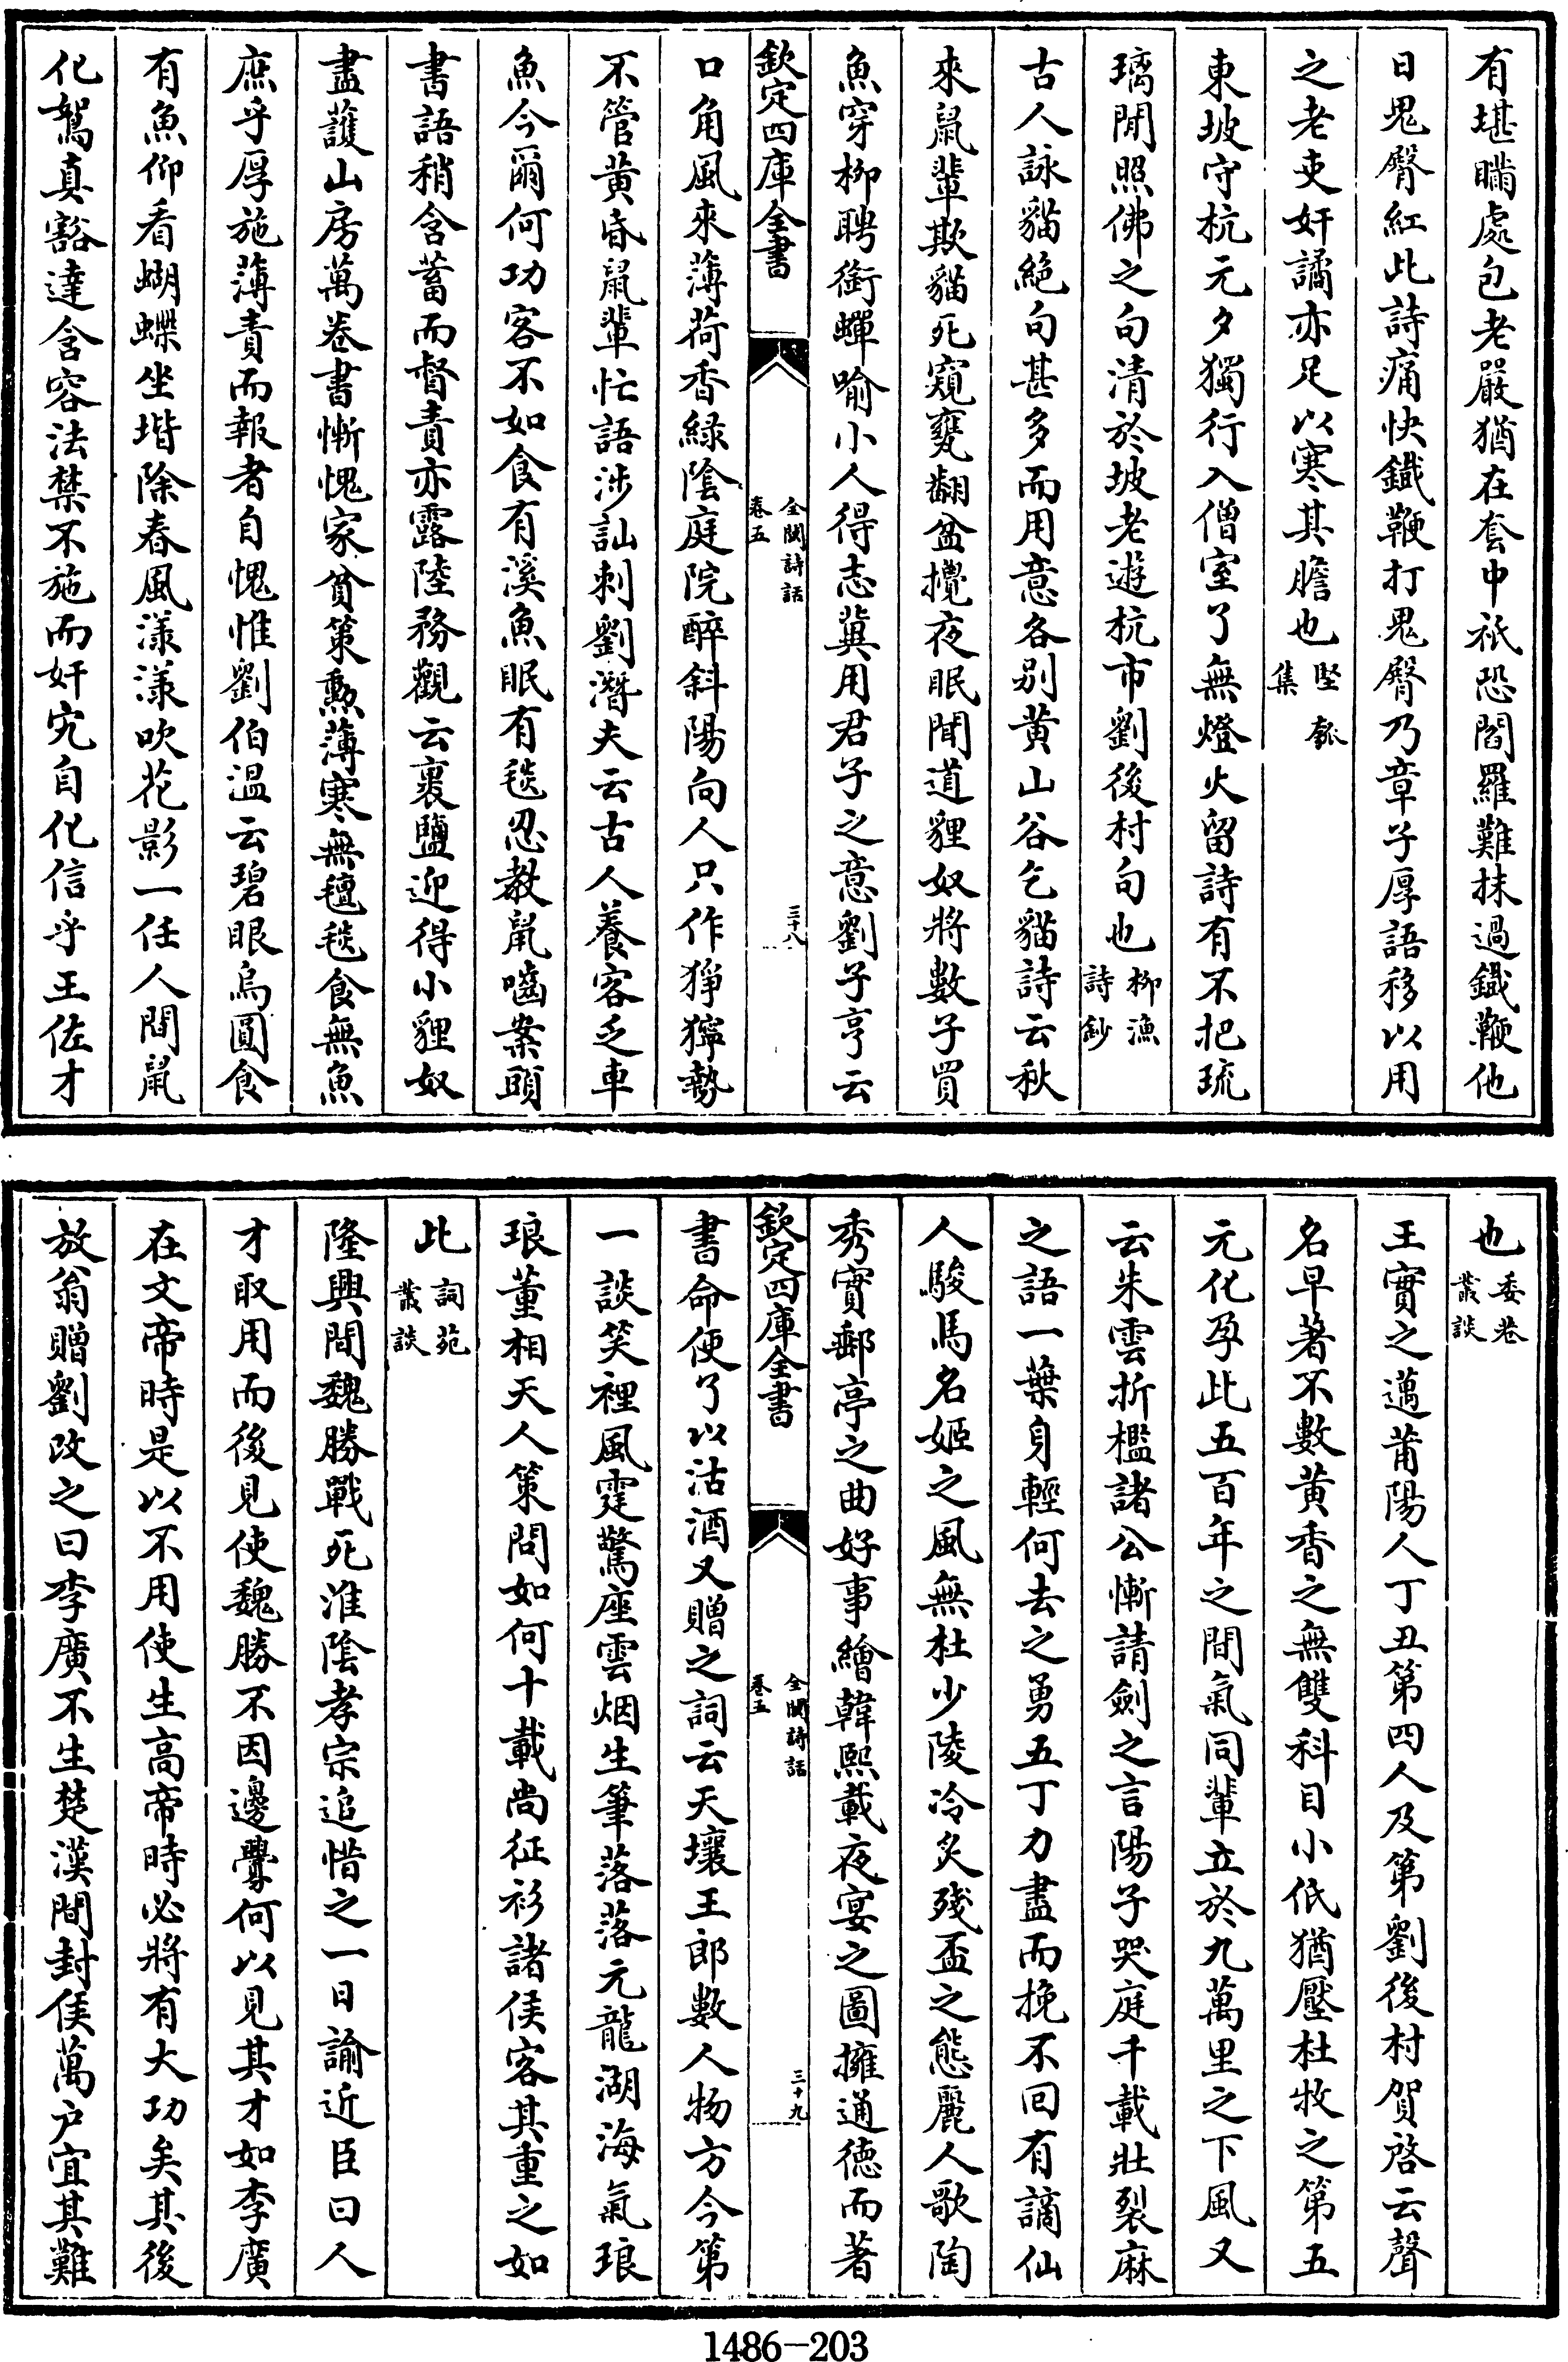 有堪瞞處包老嚴猶在套中祗恐閻羅難抹過鐡鞭他
日鬼臀紅此詩痛快鐡鞭打鬼臀乃章子厚語移以用
之老吏奸譎亦足以寒其膽也堅瓠集
東坡守杭元夕獨行入僧室了無燈火留詩有不把琉
璃閒照佛之句清於坡老遊杭市劉後村句也柳漁詩鈔
古人詠貓絶句甚多而用意各别黄山谷乞貓詩云秋
來鼠輩欺貓死窺甕翻盆攪夜眠聞道貍奴將數子買
魚穿柳聘銜蟬喻小人得志冀用君子之意劉子亨云
欽定四庫全書 全閩詩話 卷五 三十八
口角風來薄荷香緑陰庭院醉斜陽向人只作猙獰勢
不管黄昏鼠輩忙語涉訕刺劉潛夫云古人養客乏車
魚今爾何功客不如食有溪魚眠有毯忍教鼠嚙案頭
書語稍含蓄而督責亦露陸務觀云裹鹽迎得小貍奴
盡護山房萬卷書慚愧家貧策勲薄寒無氊毯食無魚
庶乎厚施薄責而報者自愧惟劉伯温云碧眼烏圓食
有魚仰看蝴蝶坐堦除春風漾漾吹花影一任人間鼠
化鴽真豁達含容法禁不施而奸宄自化信乎王佐才
也委巷叢談
王實之邁莆陽人丁丑第四人及第劉後村賀啓云聲
名早著不數黄香之無雙科目小低猶壓杜牧之第五
元化孕此五百年之間氣同輩立於九萬里之下風又
云朱雲折檻諸公慚請劍之言陽子哭庭千載壯裂麻
之語一葉身輕何去之勇五丁力盡而挽不回有謫仙
人駿馬名姬之風無杜少陵冷炙殘盃之態麗人歌陶
秀實郵亭之曲好事繪韓熙載夜宴之圖擁通德而著
欽定四庫全書 全閩詩話 卷五 三十九
書命便了以沽酒又贈之詞云天壤王郎數人物方今第
一談笑裡風霆驚座雲烟生筆落落元龍湖海氣琅
琅董相天人策問如何十載尚征衫諸侯客其重之如
此詞苑叢談
隆興間魏勝戰死淮陰孝宗追惜之一日諭近臣曰人
才取用而後見使魏勝不因邊釁何以見其才如李廣
在文帝時是以不用使生高帝時必將有大功矣其後
放翁贈劉改之曰李廣不生楚漢間封侯萬户宜其難
1486-203